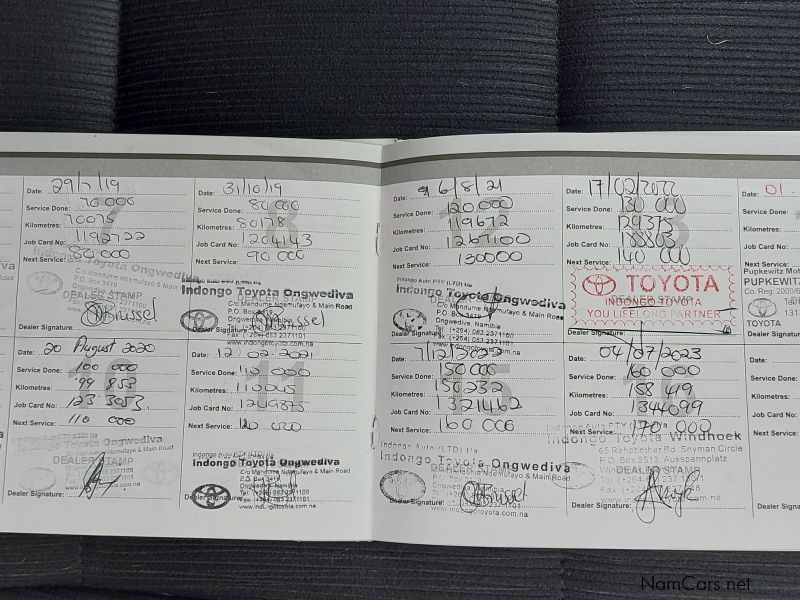 Date: 29/7/19
Service Done: 70 000
Kilometres: 70075
Job Card No: 1192722
Next Service: 80 000
Indongo Toyota Ongwediva
C/o Mandume Ndemufayo & Main Road
P.O. Box 3419
DEALER STAMP
Dealer Signature:
Date: 31/10/19
Service Done: 80 000
Kilometres: 80178
Job Card No: 1204143
Next Service: 90 000
Indongo Toyota Ongwediva
C/o Mandume Ndemufayo & Main Road
DEALER STAMP
P.O. Box 3419
Ongwediva, Namibia
www.indongotoyota.com
Dealer Signature:
20 August 2020
Service Done: 100 000
Kilometres: 99 853
Job Card No: 123 3053
Next Service: 110 000
Indongo Toyota Ongwediva
DEALER STAMP
Dealer Signature:
Date: 12/02/2021
Service Done: 110 000
Kilometres: 110045
Job Card No: 1249875
Next Service: 120 000
Indongo Toyota Ongwediva
C/o Mandume Ndemufayo & Main Road
P.O. Box 3419
DEALER STAMP
Ongwediva, Namibia
Tel: (+264) 083 2371100
Fax: (+264) 083 2371101
www.indongotoyota.com.na
Dealer Signature:
Date: 6/8/21
Service Done: 120 000
Kilometres: 119672
Job Card No: 1267100
Next Service: 130000
Indongo Auto (PTY) LTD t/a
Indongo Toyota Ongwediva
C/o Mandume Ndemufayo & Main Road
P.O. Box 3419
Ongwediva, Namibia
Tel: (+264) 083 2371100
Fax: (+264) 083 2371101
www.indongotoyota.com.na
Dealer Signature:
Date: 17/02/2022
Service Done: 130 000
Kilometres: 129375
Job Card No:
Next Service: 140 000
TOYOTA
INDONGO TOYOTA
YOU LIFELONG PARTNER
Dealer Signature:
Date: 01
Service Done:
Kilometres:
Job Card No:
Next Service:
Pupkewitz Motor
PUPKEWITZ
TOYOTA
Dealer Signature:
7/12/2022
Service Done: 150 000
Kilometres: 150232
Job Card No: 1321462
Next Service: 160 000
Indongo Auto (PTY) LTD t/a
Indongo Toyota Ongwediva
DEALER STAMP
Dealer Signature:
Date: 04/07/2023
Service Done: 160 000
Kilometres: 158 419
Job Card No: 1344099
Next Service: 170 000
Indongo Toyota Windhoek
65 Rehobother Rd, Snyman Circle
P.O. Box 3513, Ausspannplatz
DEALER STAMP
Dealer Signature:
Date:
Service Done:
Kilometres:
Job Card No:
Next Service:
Dealer Sign
NamCars.net